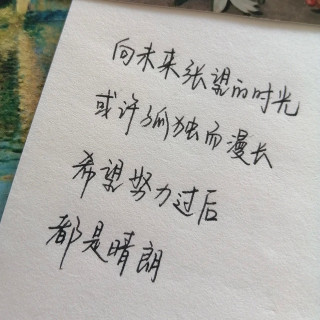 向未来张望的时光
或许孤独而漫长
希望努力过后
都是晴朗